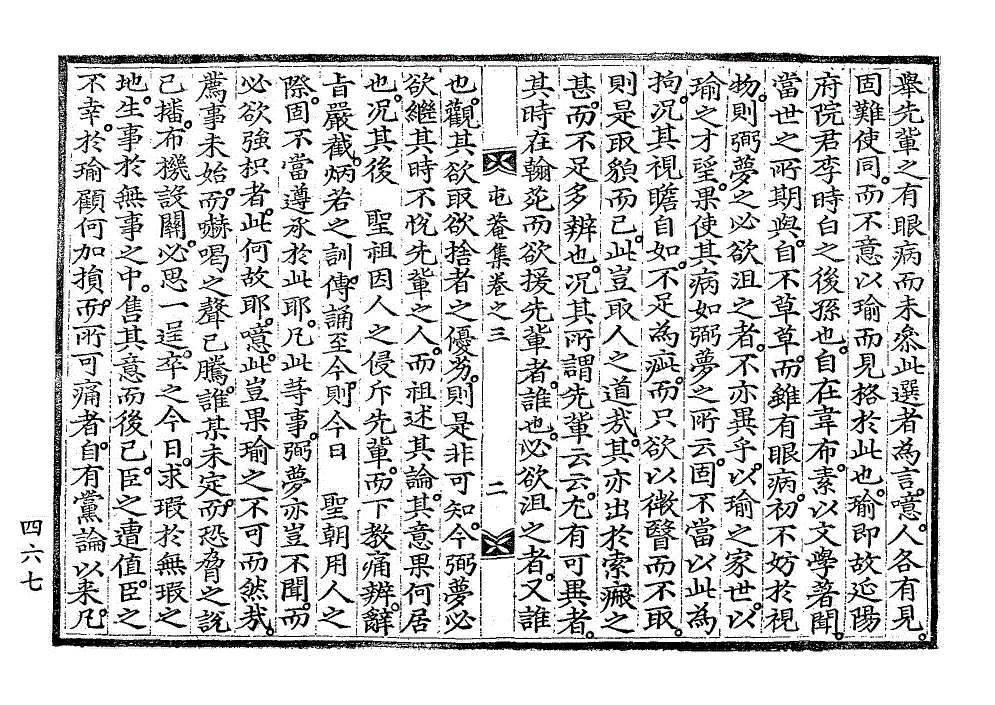 擧先輩之有眼病而未叅此選者為言。噫。人各有見。
固難使同。而不意以瑜而見格於此也。瑜卽故延陽
府院君李時白之後孫也。自在韋布。素以文學著聞。
當世之所期與。自不草草。而雖有眼病。初不妨於視
物。則弼夢之必欲沮之者。不亦異乎。以瑜之家世。以
瑜之才望。果使其病如弼夢之所云。固不當以此為
拘。況其視瞻自如。不足為疵。而只欲以微瞖而不取。
則是取貌而已。此豈取人之道哉。其亦出於索瘢之
甚。而不足多辨也。況其所謂先輩云云。尤有可異者。
其時在翰苑而欲援先輩者。誰也。必欲沮之者。又誰
屯菴集卷之三
二
也。觀其欲取欲捨者之優劣。則是非可知。今弼夢必
欲繼其時不悅先輩之人。而祖述其論。其意果何居
也。況其後 聖祖因人之侵斥先輩。而下敎痛辨。辭
旨嚴截。炳若之訓。傳誦至今。則今日 聖朝用人之
際。固不當遵承於此耶。凡此等事。弼夢亦豈不聞。而
必欲強拟者。此何故耶。噫。此豈果瑜之不可而然哉。
薦事未始。而嚇喝之聲已騰。誰某未定。而恐脅之說
已播。布機設關。必思一逞。卒之今日。求瑕於無瑕之
地。生事於無事之中。售其意而後已。臣之遭值。臣之
不幸。於瑜顧何加損。而所可痛者。自有黨論以來。凡
四六七